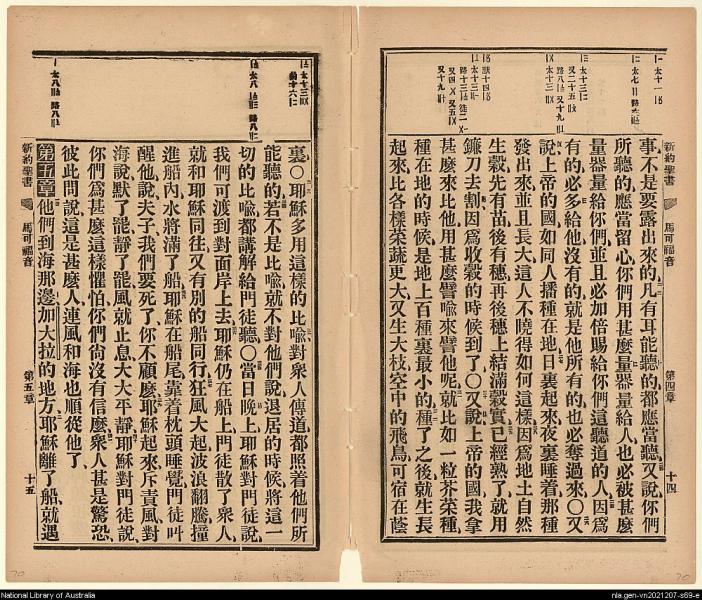 新約聖書
馬可福音
第四章
十四
事、不是要露出來的、凡有耳能聽的、都應當聽、又說、你們
所聽的、應當留心、你們用甚麼量器量給人、也必被甚麼
量器量給你們、並且必加倍賜給你們這聽道的人、因爲
有的、必多給他、沒有的、就是他所有的、也必奪過來、〇又
說、上帝的國、如同人播種在地、日裏起來、夜裏睡着、那種
發出來、並且長大、這人不曉得如何這樣、因爲地土自然
生穀、先有苗、後有穗、再後穗上結滿穀實、已經熟了、就用
鐮刀去割、因爲收穀的時候到了、〇又說、上帝的國、我拿
甚麼來比他、用甚麼譬喻來譬他呢、就比如一粒芥菜種、
種在地的時候、是地上百種裏最小的種、了之後、就生長
起來、比各樣菜蔬更大、又生大枝、空中的飛鳥、可宿在蔭
裏、〇耶穌多用這樣的比喻、對衆人傳道、都照着他們所
能聽的、若不是比喻、就不對他們說、退居的時候、將這一
切的比喻、都講解給門徒聽、〇當日晚上、耶穌對門徒說、
我們可渡到對面岸上去、耶穌仍在船上、門徒散了衆人、
就和耶穌同往、又有別的船同行、狂風大起、波浪翻騰、撞
進船內、水將滿了船、耶穌在船尾靠着枕頭睡覺、門徒叫
醒他說、夫子、我們要死了、你不顧麼、耶穌起來、斥責風、對
海說、默了罷、靜了罷、風就止息、大大平靜、耶穌對門徒說、
你們爲甚麼這樣懼怕、你們尙沒有信麼、衆人甚是驚恐、
彼此問說、這是甚麼人、連風和海也順從他了、
第五章他們到海那邊加大拉的地方、耶穌離了船、就遇
新約聖書
馬可福音
第五章
十五
National Library of Australia
nla.gen-vn2021207-s69-e